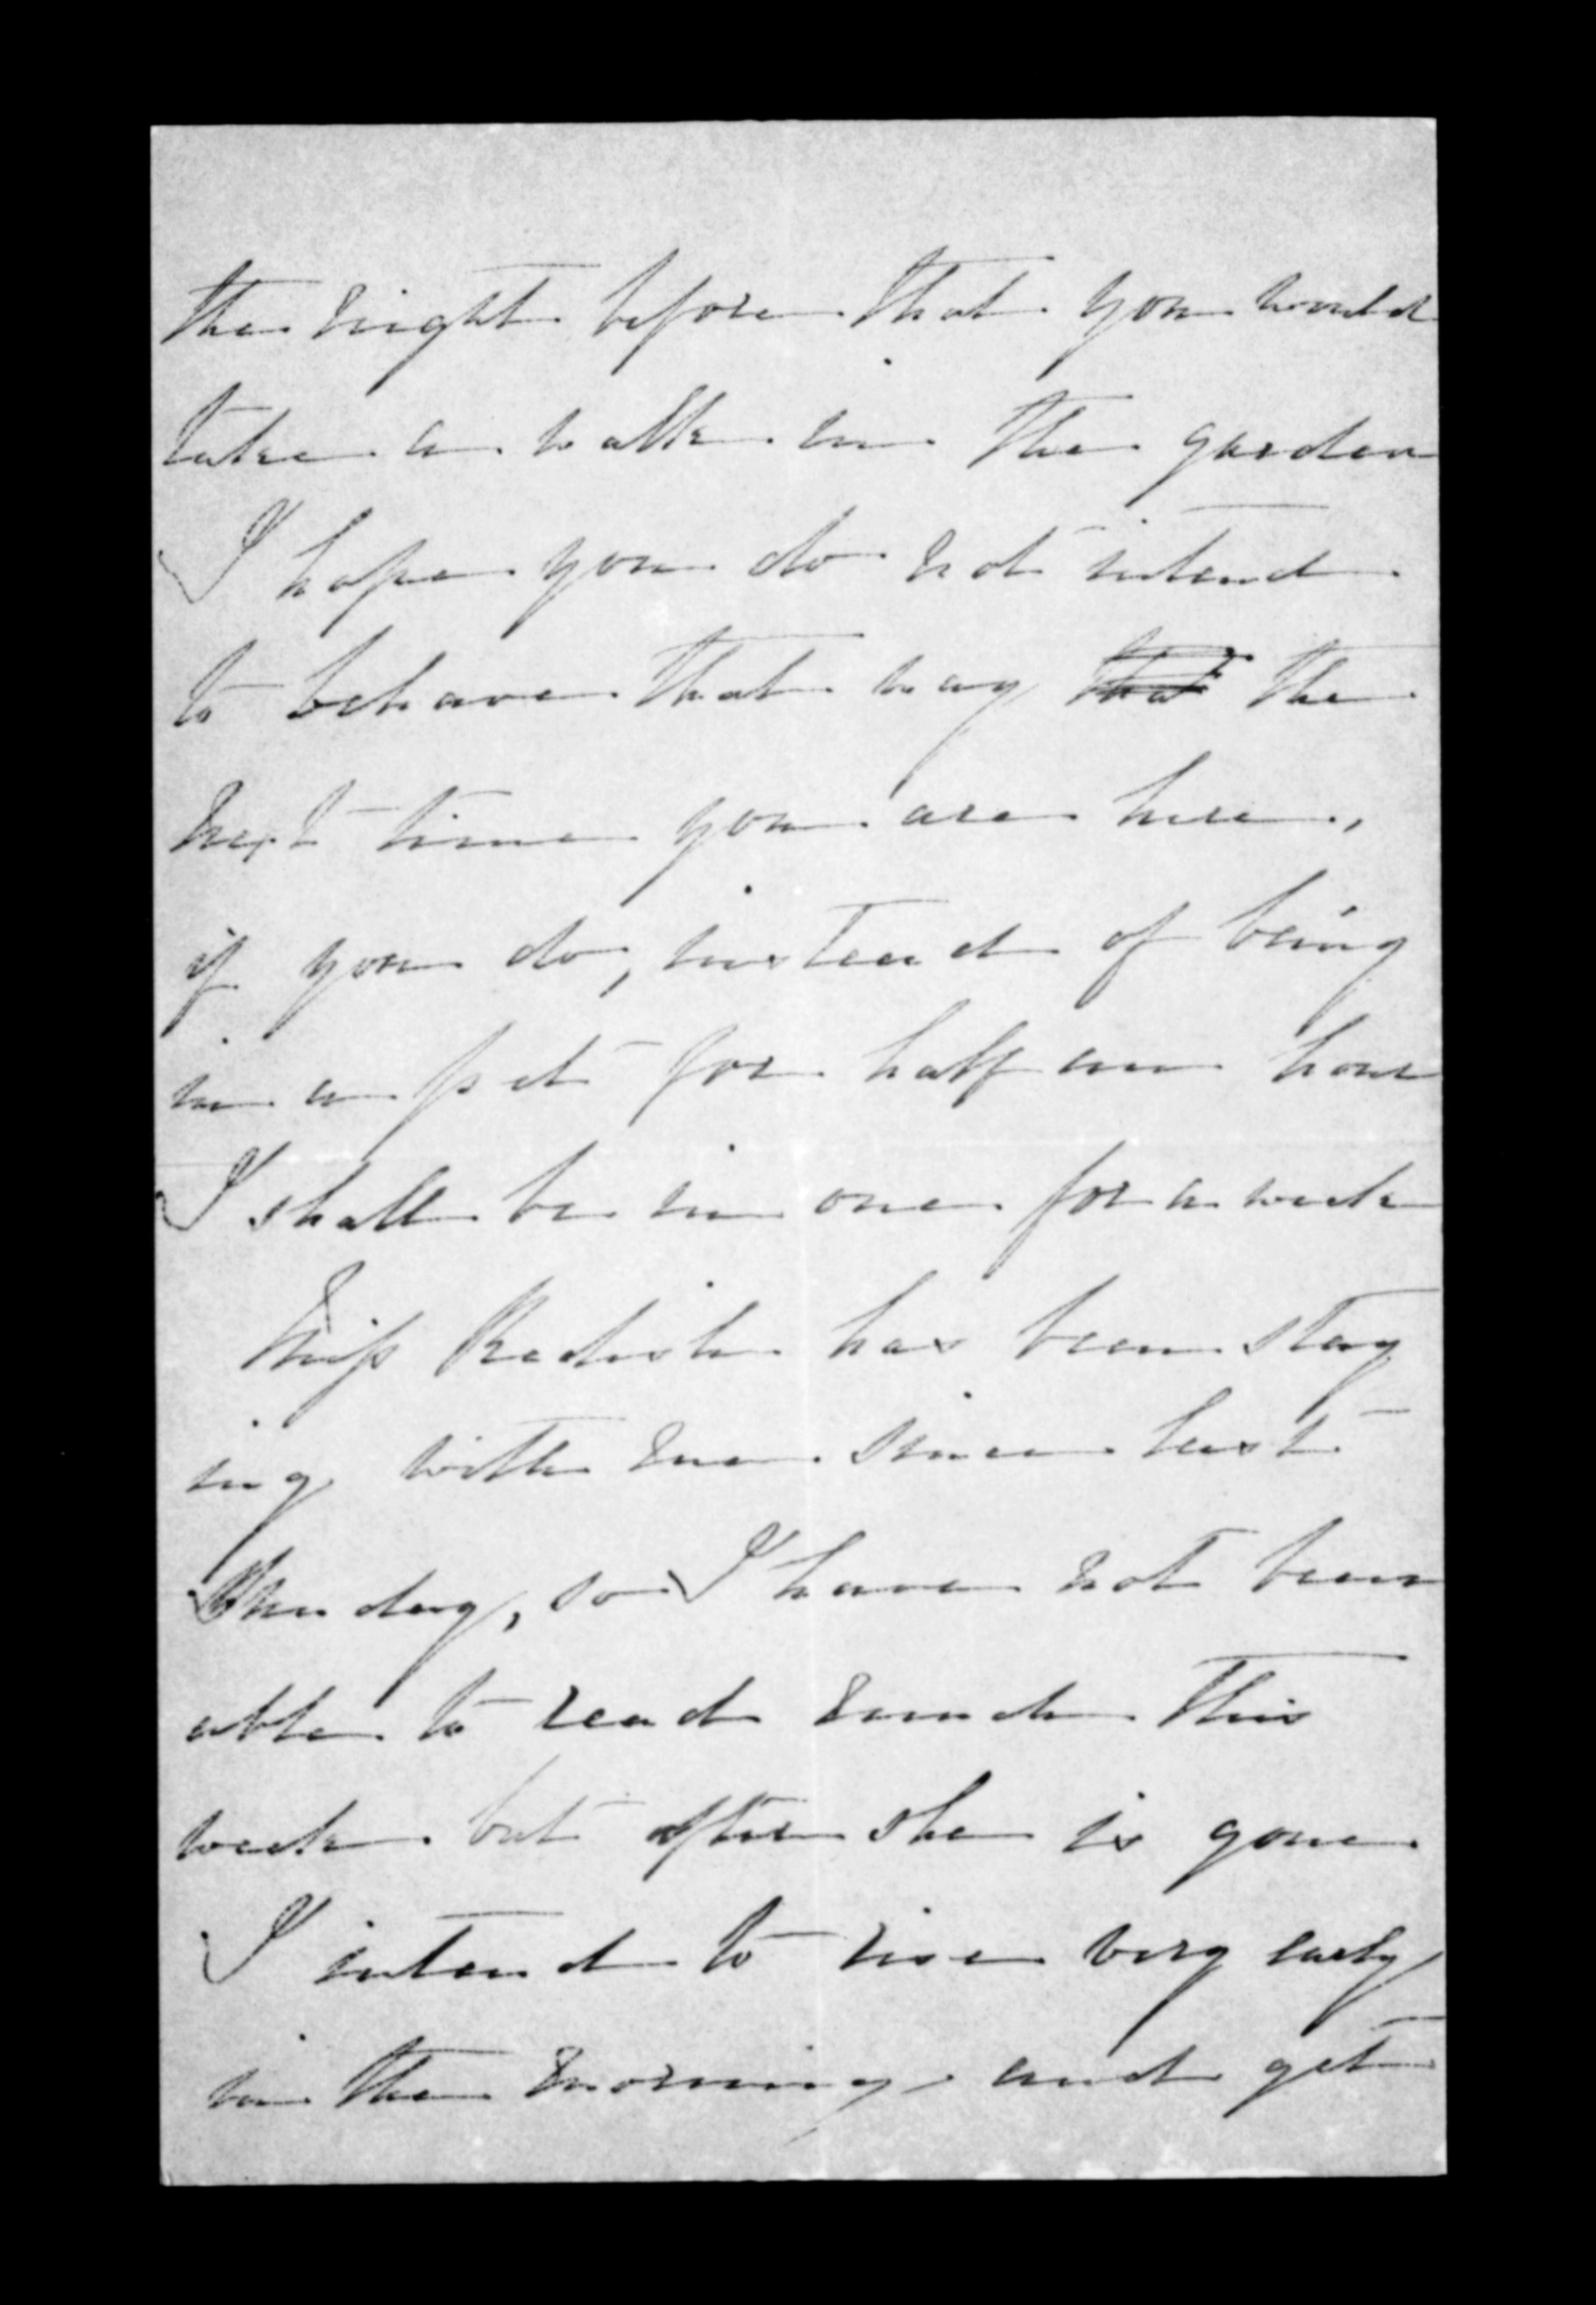 the night before that you would
take a walk in the garden
I hope you do not intend
to behave that way that the
next time you are here,
if you do, instead of being
in a pet for half an hour
I shall be in one for a week
Miss has been stay
ing with me since last
so I have not been
able to read much this
week but after she is gone
I intend to rise very early
in the morning and get